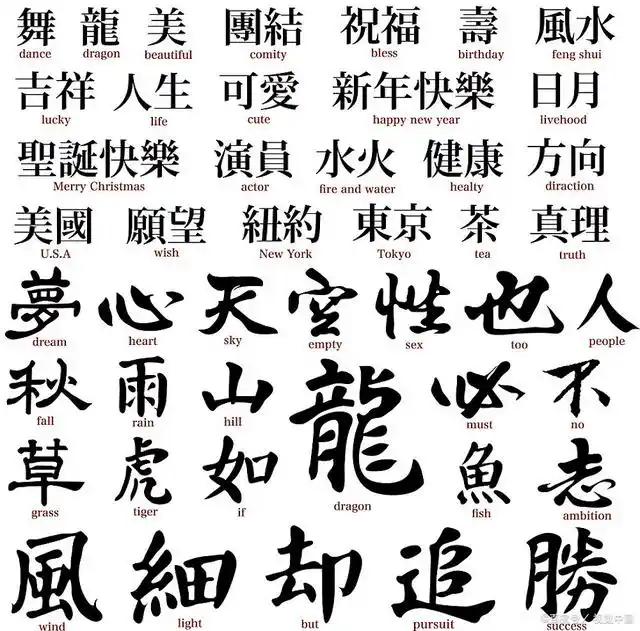 舞 龍 美 團結 祝福 壽 風水
dance dragon beautiful comity bless birthday feng shui
吉祥 人生 可愛 新年快樂 日月
lucky life cute happy new year livehood
聖誕快樂 演員 水火 健康 方向
Merry Christmas actor fire and water healty diraction
美國 願望 紐約 東京 茶 真理
U.S.A wish New York Tokyo tea truth
夢 心 天 空 性 也 人
dream heart sky empty sex too people
秋 雨 山 龍 必 不
fall rain hill must no
草 虎 如 魚 志
grass tiger if dragon fish ambition
風 細 却 追 勝
wind light but pursuit success